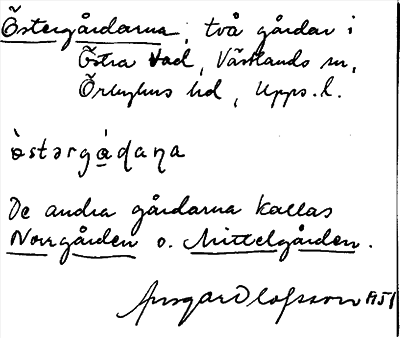 Östergårdarna, två gårdar i
Östra Vad, Västlands sn,
Örbyhus hd, Upps. l.
òstərgádaɳa
De andra gårdarna kallas
Norrgården o. Mittelgården.
Ansgar Olofsson 1951